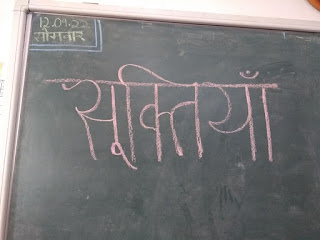 12.09.22
सोमवार
सूक्तियाँ